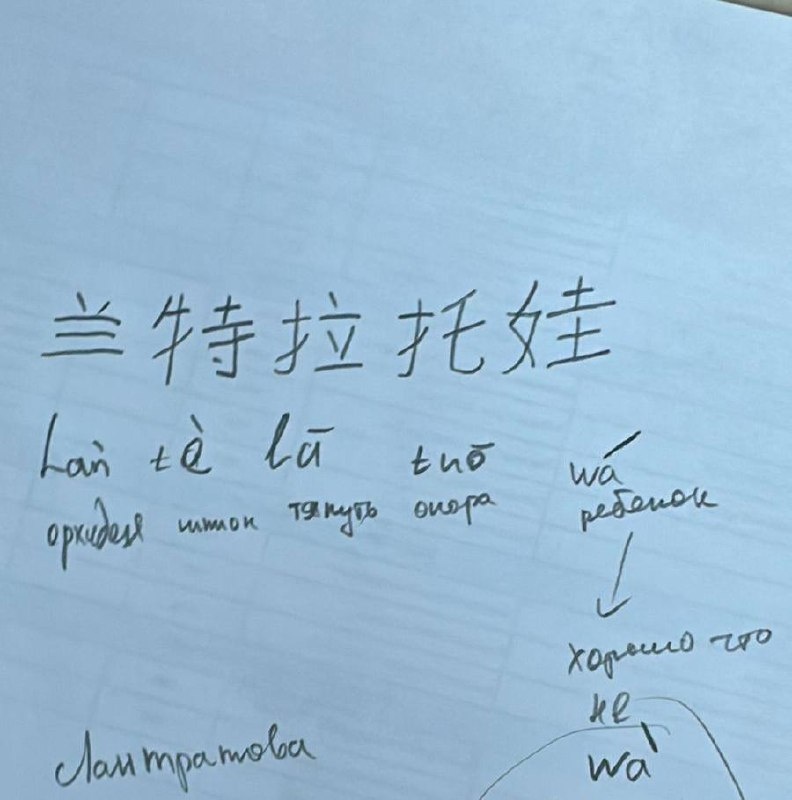 兰特拉托娃
Làn tè lā tuō wá
орхидея шток тянуть опора ребенок
хорошо что
не
wà
Лантратова